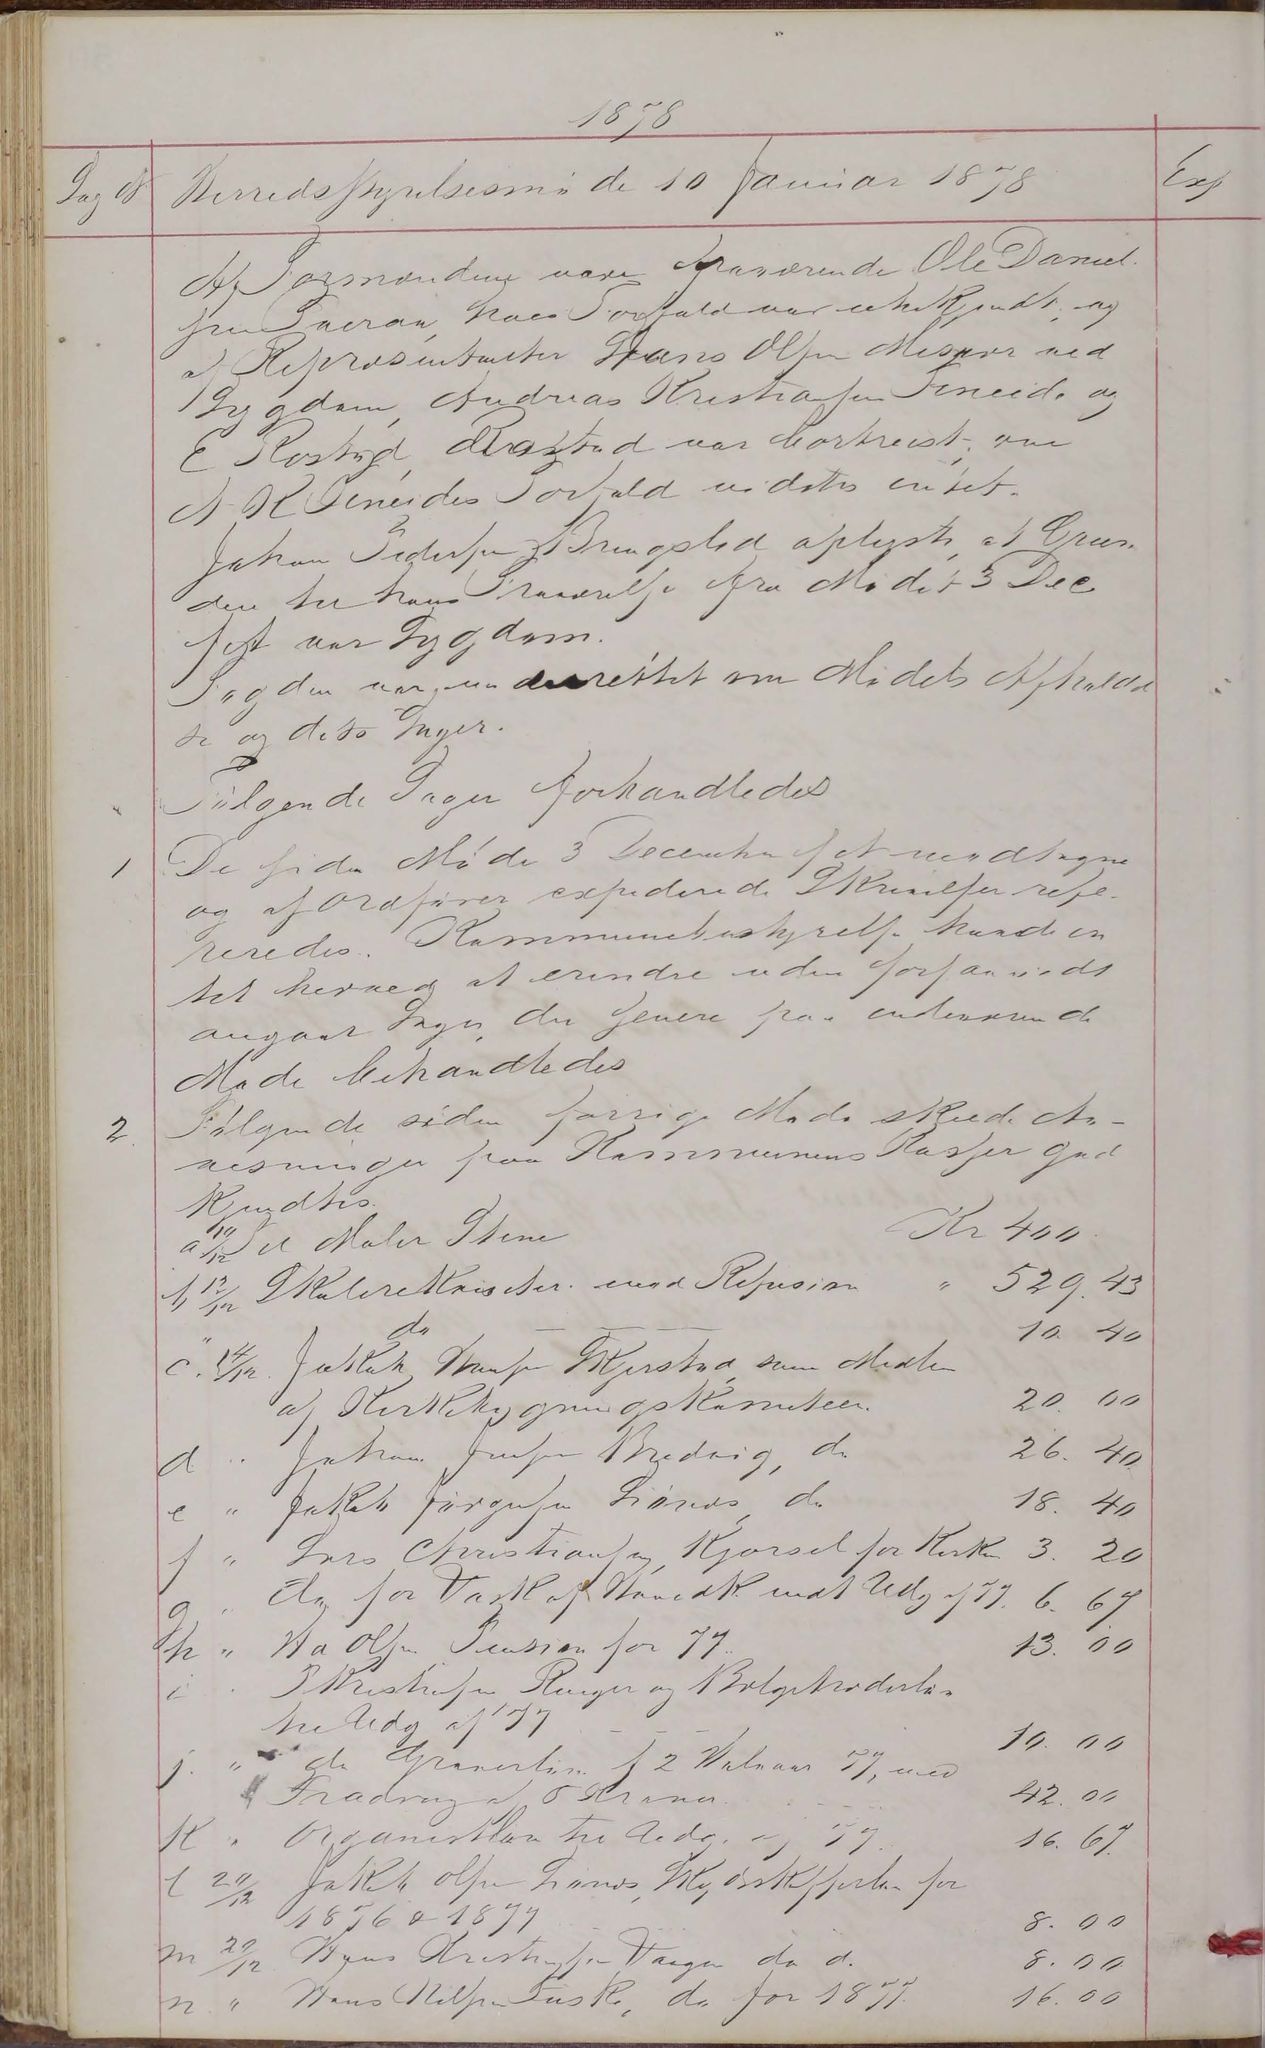 1878
Sag № Herredsstyrelsesmøde 10 Januar 1878 Exp
Af Formændene vare fraværende Ole Daniel-
sen Sneraa, hvis Forfald var ubekjendt, og
af Repræsentanter Hans Olsen Misvær ved
Sygdom, Andreas Kristiansen Gneide og
E Rostad, Rostad var bortreist; om
A K Gneides Forfald vidstes intet.
Johan Pedersen Bringslid oplyste, at Grun-
den til hans Fraværelse fra Mødet 3 Dec
sidst var Sygdom.
Fogden var underrettet om Mødets Afholdel
se og dets Sager.
Følgende Sager forhandledes
1 De siden Møde 3 December sidst modtagne
og af Ordfører expederede Skrivelser refe-
reredes. Kommunebestyrelsen havde in
tet herved at erindre uden forsaavidt
angaar Sager, der senere paa indeværende
Møde behandledes
2. Følgende siden forrige Møde skeede An-
visninger paa Kommunens Kasser god
kjendtes.
a 10/12 Til Maler Stene Kr 400
b 12/12 Skolerekvisiter mod Refusion " 529.43
" do 10.40
c. 14/12. Jakob Hansen Skjerstad som Medlem
af Kirkebygningskomiteen. 20.00
d " Johan Jensen Bredvig, do 26.40
e " Jakob Jørgensen Løvnes do 18.40
f " Lars Christiansen, Kjørsel for Kirken 3.20
g " do for Vask af Hovedk indt Udg af 77. 6.67
h " Olsen Pension for 77. 13.00
i " Kristensen Ringer og Bælgetræderløn
til Udg af 77 10.00
j. " do Graverløn f 2 Halvaar 77, med
Fradrag af 5 Kroner 42.00
k " Organistløn til Udg. af 77. 16.67.
l 20/12 Jakob Olsen Løvnes, Skydsskafferløn for
1876 & 1877 8.00
m 20/12 Hans Kristensen Vaagen do d. 8.00
n. " Hans Nilsen Fuske, do for 1877. 16.00